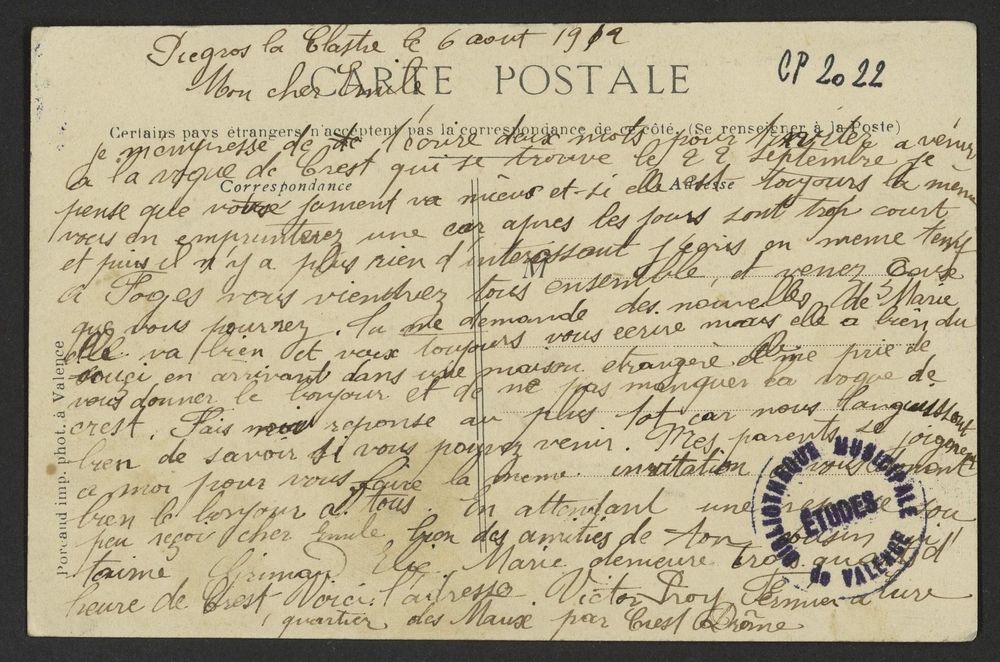 Piegros la Clastre le 6 aout 1912
CP 2022
Mon cher Emile
CARTE POSTALE
Certains pays étrangers n'acceptent pas la correspondance de ce côté. (Se renseigner à la Poste)
je m'empresse de t'écrire deux mots pour t'inviter a venir
a la vogue de Crest qui se trouve le 22 septembre je
Correspondance
Adresse
pense que votre jument va mieux et si elle est toujours la meme
vous en emprunterez une car apres les jours sont trop court
et puis il n'y a plus rien d'interessant j'ecris en meme temps
M
a Foges vous viendrez tous ensemble, et venez
que vous pourrez. Tu me demande des nouvelles de Marie
Elle va bien et veux toujours vous ecrire mais elle a bien du
souci en arrivant dans une maison etrangere elle me prie de
vous donner le bonjour et de ne pas manquer la vogue de
crest. Fais moi reponse au plus tot car nous languissont
bien de savoir si vous pouvez venir. Mes parents se joignent
a moi pour vous faire la meme invitation vous
bien le bonjour a tous. En attendant une reponse sou
peu reçoi cher Emile bien des amities de ton cousin qui
t'aime Elie Marie demeure trois quart d'
heure de Crest Voici l'adresse Victor Troy Fermier a Lure
quartier des Maux par Crest Drôme
Porcaud imp. phot. à Valence
BIBLIOTHEQUE MUNICIPALE
ETUDES
de VALENCE